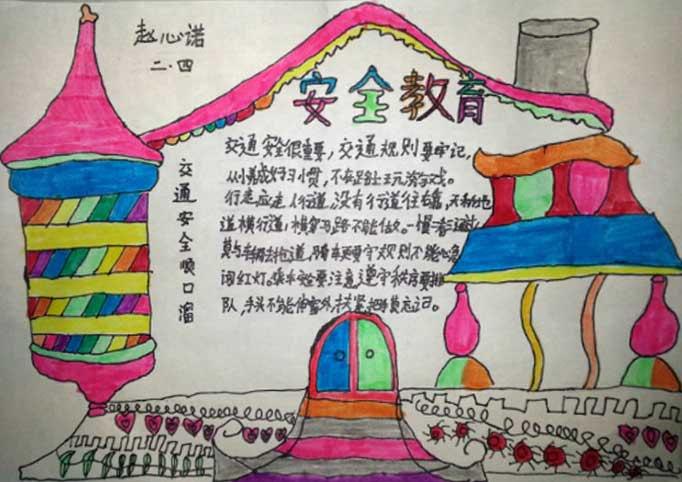 赵心诺
二·四
安全教育
交通安全顺口溜
交通安全很重要，交通规则要牢记，
从小养成好习惯，不在路上玩游戏。
行走应走人行道，没有行道往右靠，天桥地
道横行道，横穿马路不能做。一慢二看三通过，
莫与车辆去抢道，骑车更要守规则，不能心急
闯红灯。乘车安要注道遵守秩序要排
队，手头不能伸窗外，扶紧把手莫忘记。